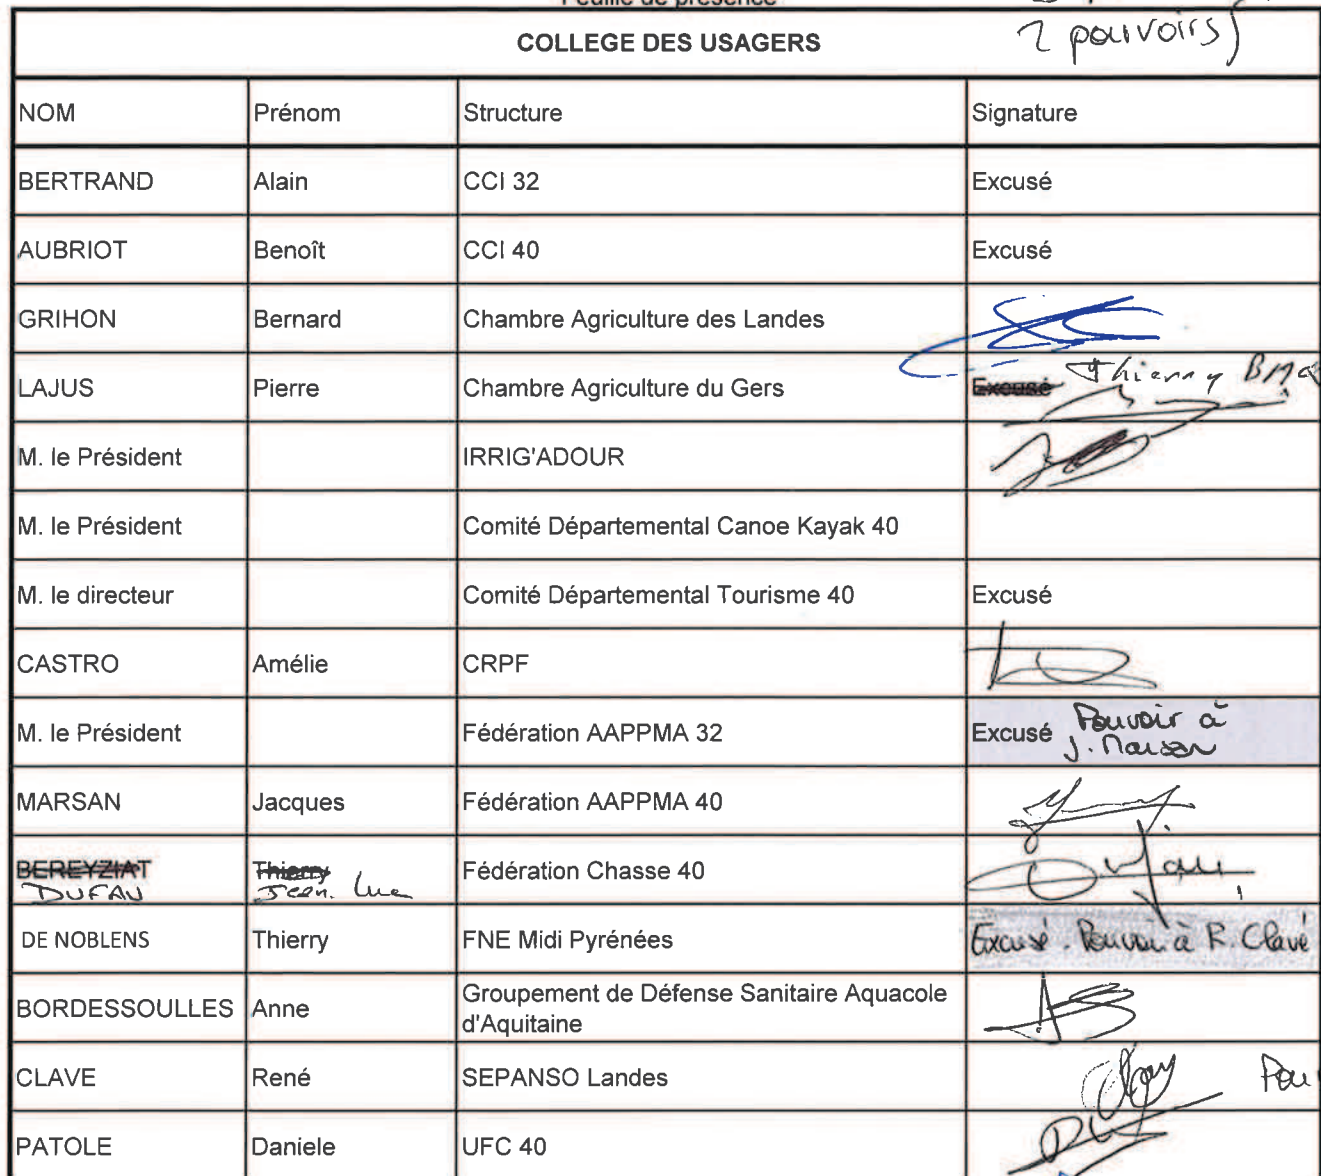 Feuille de présence
2 pouvoirs)
COLLEGE DES USAGERS
NOM Prénom Structure Signature
BERTRAND Alain CCI 32 Excusé
AUBRIOT Benoît CCI 40 Excusé
GRIHON Bernard Chambre Agriculture des Landes
LAJUS Pierre Chambre Agriculture du Gers Excusé Thierry
M. le Président IRRIG'ADOUR
M. le Président Comité Départemental Canoe Kayak 40
M. le directeur Comité Départemental Tourisme 40 Excusé
CASTRO Amélie CRPF
M. le Président Fédération AAPPMA 32 Excusé Pouvoir à
J. Marsan
MARSAN Jacques Fédération AAPPMA 40
BEREYZIAT Thierry Fédération Chasse 40
DUFAU Jean. Luc
DE NOBLENS Thierry FNE Midi Pyrénées Excusé. Pouvoir à R. Clavé
BORDESSOULLES Anne Groupement de Défense Sanitaire Aquacole
d'Aquitaine
CLAVE René SEPANSO Landes Pou
PATOLE Daniele UFC 40